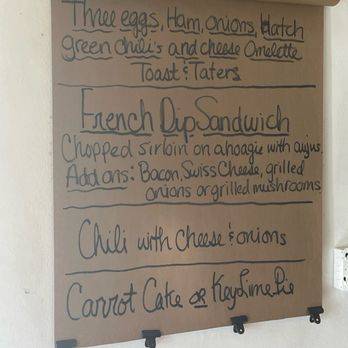 Three eggs, Ham, onions, Hatch
green chili's and cheese Omelette
Toast & Taters
French Dip Sandwich
Chopped sirloin on a hoagie with aujus.
Add ons: Bacon, Swiss Cheese, grilled
onions or grilled mushrooms
Chili with Cheese & onions
Carrot Cake or Key Lime Pie